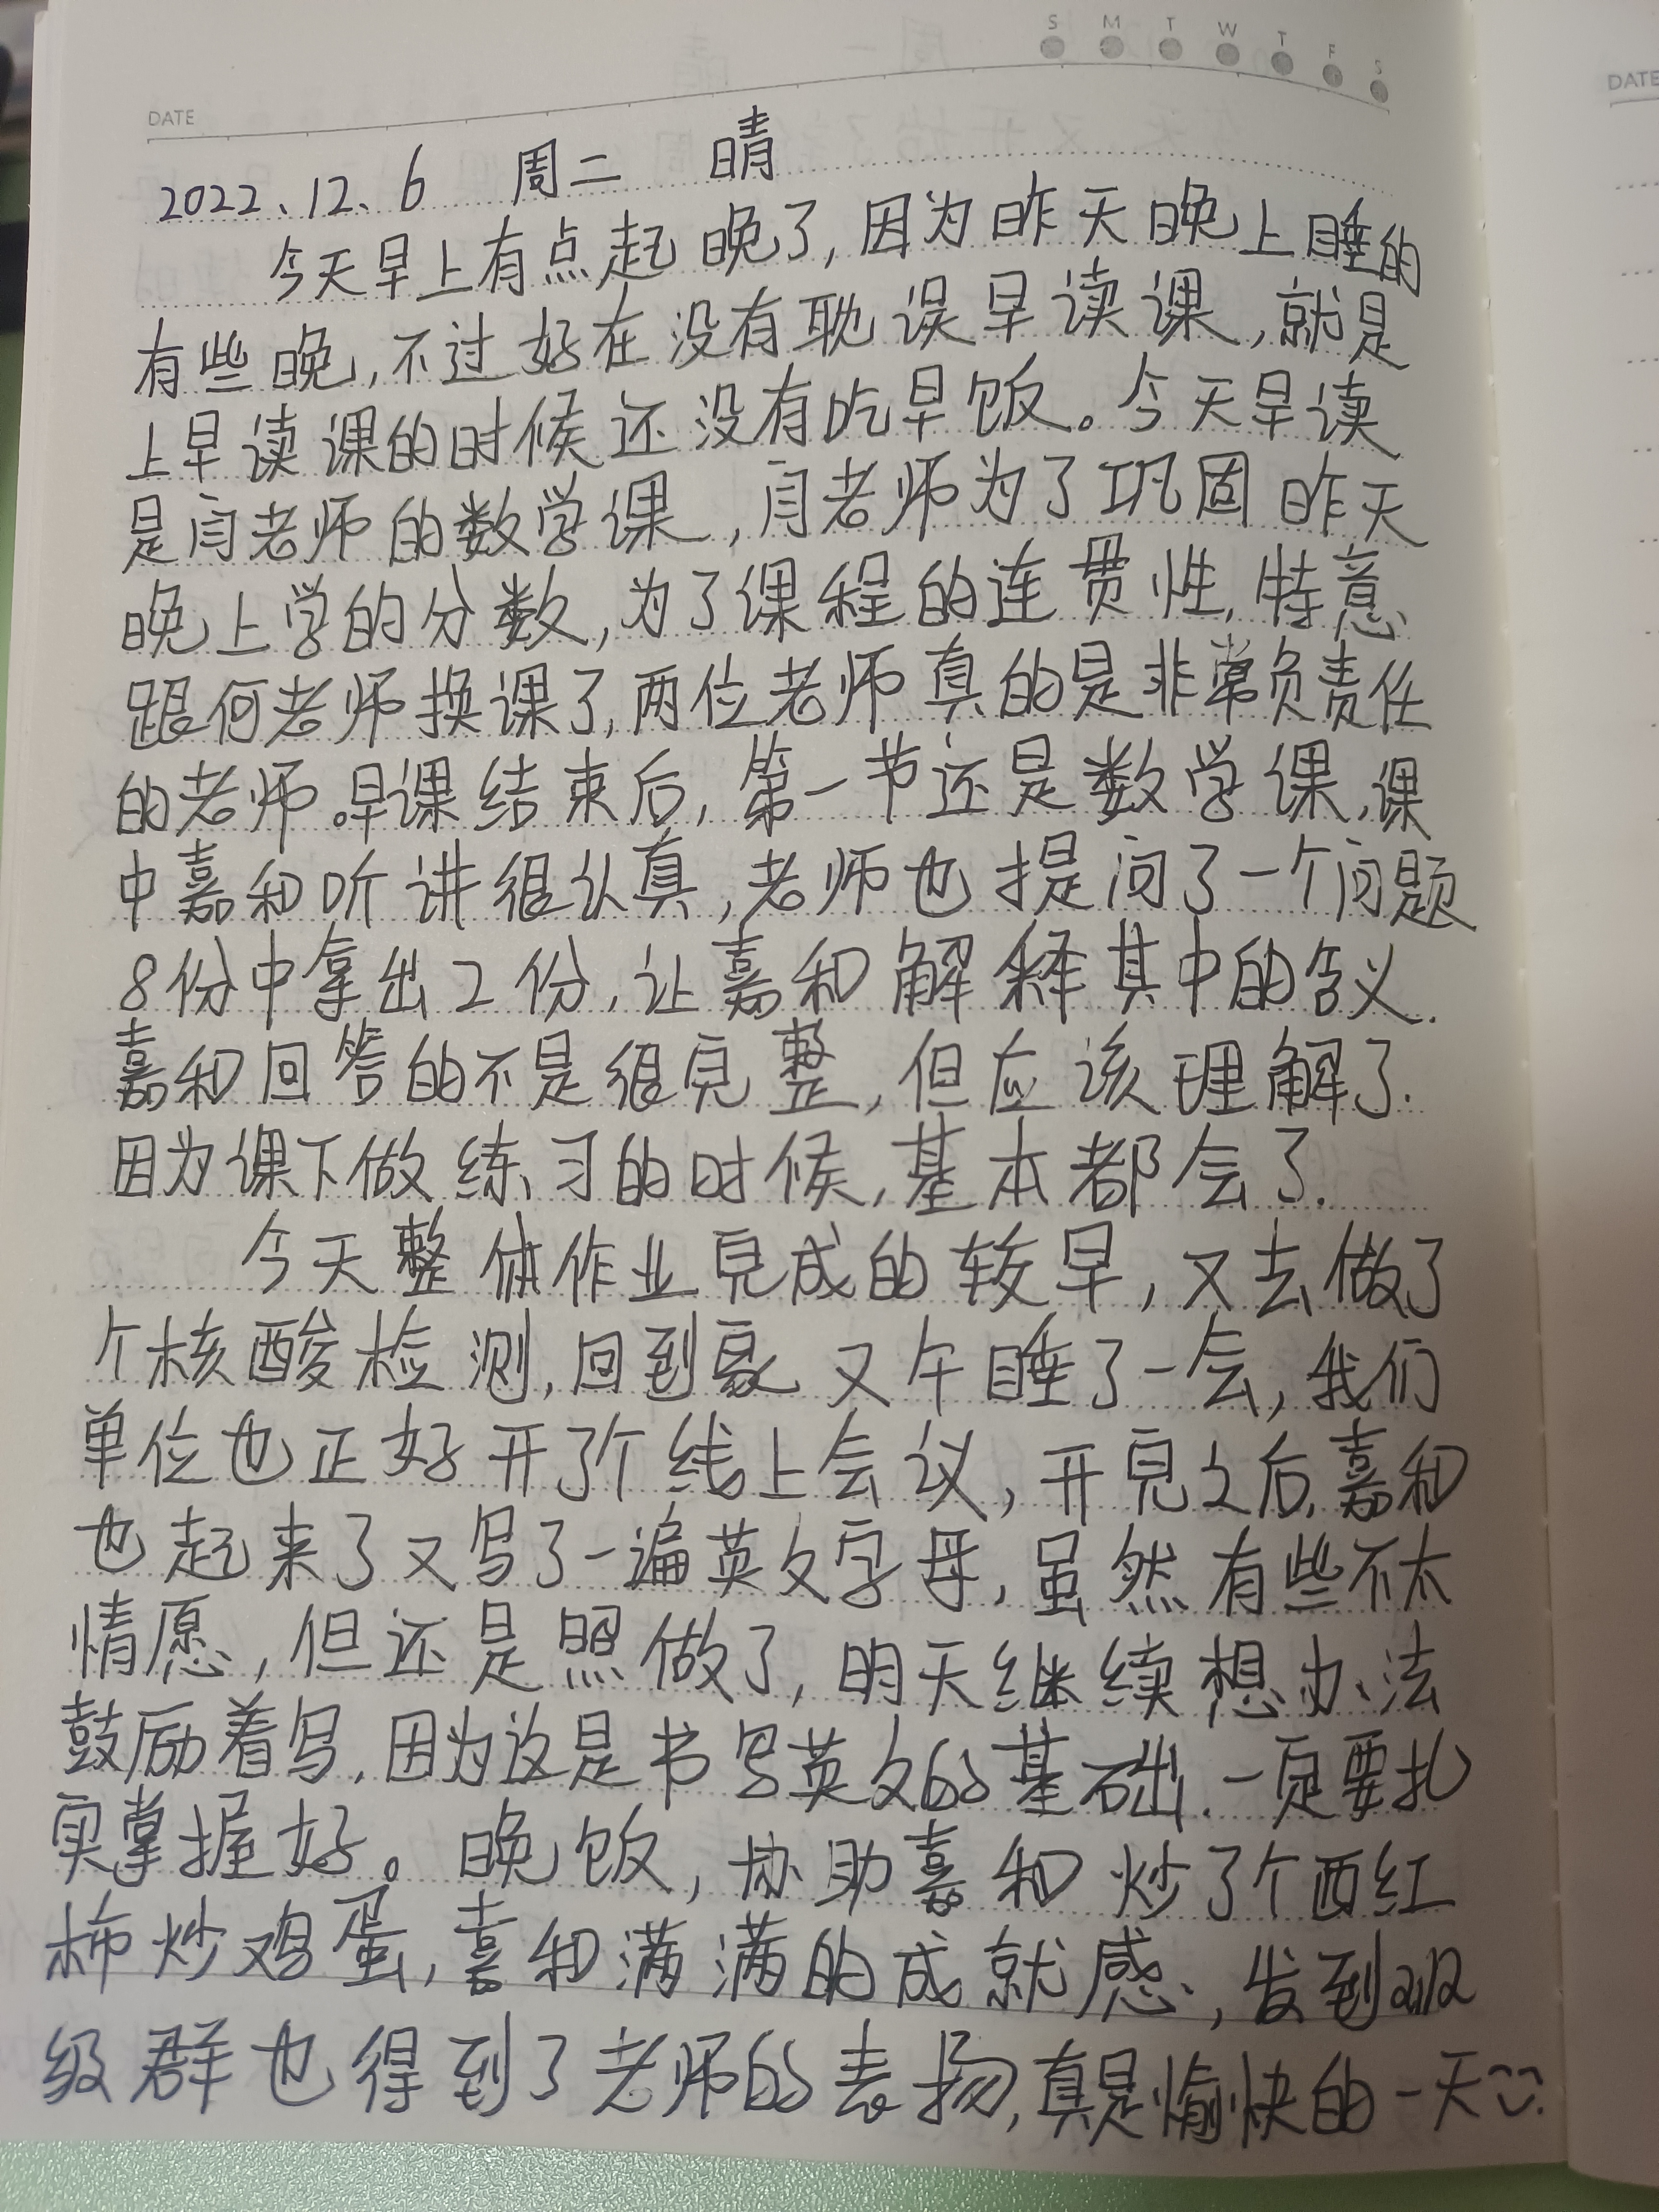 S M T W T F S
DATE
DATE
2022、12、6 周二 晴
今天早上有点起晚了,因为昨天晚上睡的
有些晚,不过好在没有耽误早读课,就是
上早读课的时候还没有吃早饭。今天早读
是闫老师的数学课,闫老师为了巩固昨天
晚上学的分数,为了课程的连贯性,特意
跟何老师换课了,两位老师真的是非常负责任
的老师。早课结束后,第一节还是数学课,课
中嘉和听讲很认真,老师也提问了一个问题
8份中拿出2份,让嘉和解释其中的含义.
嘉和回答的不是很完整,但应该理解了.
因为课下做练习的时候,基本都会了.
今天整体作业完成的较早,又去做了
个核酸检测,回到家又午睡了一会,我们
单位也正好开了个线上会议,开完之后,嘉和
也起来了又写了一遍英文字母,虽然有些不太
情愿,但还是照做了,明天继续想办法
鼓励着写,因为这是书写英文的基础.一定要扎
实掌握好。晚饭,协助嘉和炒了个西红
柿炒鸡蛋,嘉和满满的成就感,发到班
级群也得到了老师的表扬,真是愉快的一天.